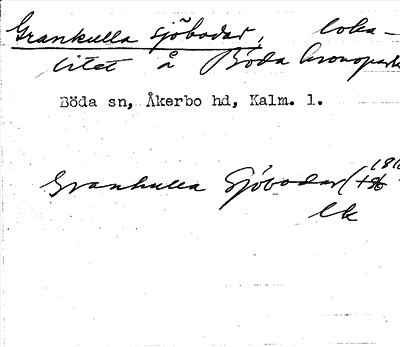 Grankulla sjöbodar, loka-
litet å Böda kronopark
Böda sn, Åkerbo hd, Kalm. l.
Grankulla Sjöbodar (
lk